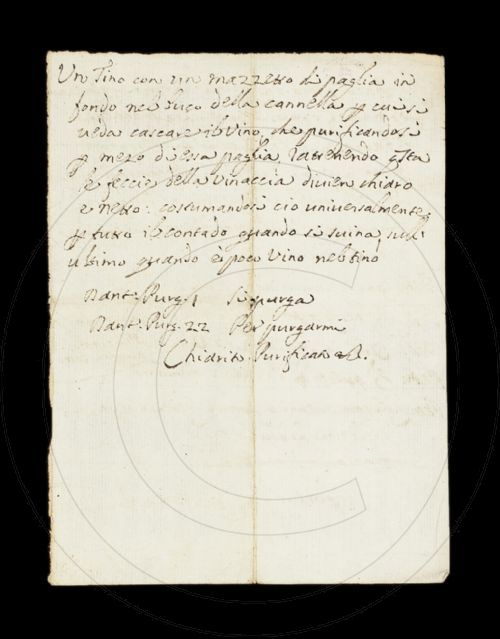 Un Tino con un mazzetto di paglia in
fondo nel buco della cannella p cui si
veda cascare il Vino, che purificandosi
p mezo di essa paglia, ratenendo qsta
le feccie della vinaccia divien chiaro
e netto: costumandosi cio universalmente
p tutto il contado quando si svina, nell'
ultimo quando è poco vino nel tino
Dant: Purg. 1 Si purga
Dant. Purg. 22 Per purgarmi
Chiarito Purificato